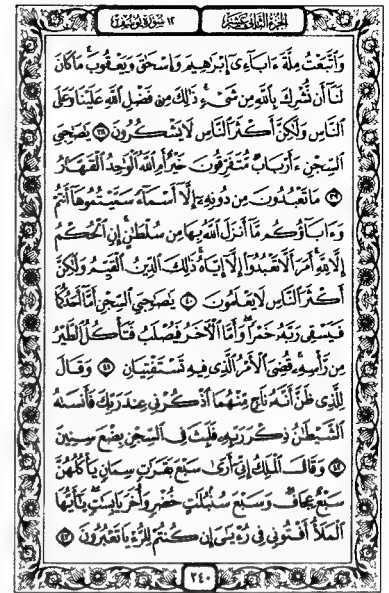 الجزء الثاني عشر ١٢ سورة يوسف
وَاتَّبَعْتُ مِلَّةَ ءَابَآءِىٓ إِبْرَٰهِيمَ وَإِسْحَٰقَ وَيَعْقُوبَ ۚ مَا كَانَ
لَنَآ أَن نُّشْرِكَ بِاللَّهِ مِن شَىْءٍ ۚ ذَٰلِكَ مِن فَضْلِ اللَّهِ عَلَيْنَا وَعَلَى
النَّاسِ وَلَٰكِنَّ أَكْثَرَ النَّاسِ لَا يَشْكُرُونَ ٣٨ يَٰصَٰحِبَىِ
السِّجْنِ ءَأَرْبَابٌ مُّتَفَرِّقُونَ خَيْرٌ أَمِ اللَّهُ الْوَٰحِدُ الْقَهَّارُ
٣٩ مَا تَعْبُدُونَ مِن دُونِهِۦٓ إِلَّآ أَسْمَآءً سَمَّيْتُمُوهَآ أَنتُمْ
وَءَابَآؤُكُم مَّآ أَنزَلَ اللَّهُ بِهَا مِن سُلْطَٰنٍ ۚ إِنِ الْحُكْمُ
إِلَّا لِلَّهِ ۚ أَمَرَ أَلَّا تَعْبُدُوٓا إِلَّآ إِيَّاهُ ۚ ذَٰلِكَ الدِّينُ الْقَيِّمُ وَلَٰكِنَّ
أَكْثَرَ النَّاسِ لَا يَعْلَمُونَ ٤٠ يَٰصَٰحِبَىِ السِّجْنِ أَمَّآ أَحَدُكُمَا
فَيَسْقِى رَبَّهُۥ خَمْرًا ۖ وَأَمَّا الْءَاخَرُ فَيُصْلَبُ فَتَأْكُلُ الطَّيْرُ
مِن رَّأْسِهِۦ ۚ قُضِىَ الْأَمْرُ الَّذِى فِيهِ تَسْتَفْتِيَانِ ٤١ وَقَالَ
لِلَّذِى ظَنَّ أَنَّهُۥ نَاجٍ مِّنْهُمَا اذْكُرْنِى عِندَ رَبِّكَ فَأَنسَىٰهُ
الشَّيْطَٰنُ ذِكْرَ رَبِّهِۦ فَلَبِثَ فِى السِّجْنِ بِضْعَ سِنِينَ
٤٢ وَقَالَ الْمَلِكُ إِنِّىٓ أَرَىٰ سَبْعَ بَقَرَٰتٍ سِمَانٍ يَأْكُلُهُنَّ
سَبْعٌ عِجَافٌ وَسَبْعَ سُنۢبُلَٰتٍ خُضْرٍ وَأُخَرَ يَابِسَٰتٍ ۖ يَٰٓأَيُّهَا
الْمَلَأُ أَفْتُونِى فِى رُءْيَٰىَ إِن كُنتُمْ لِلرُّءْيَا تَعْبُرُونَ ٤٣
٢٤٠